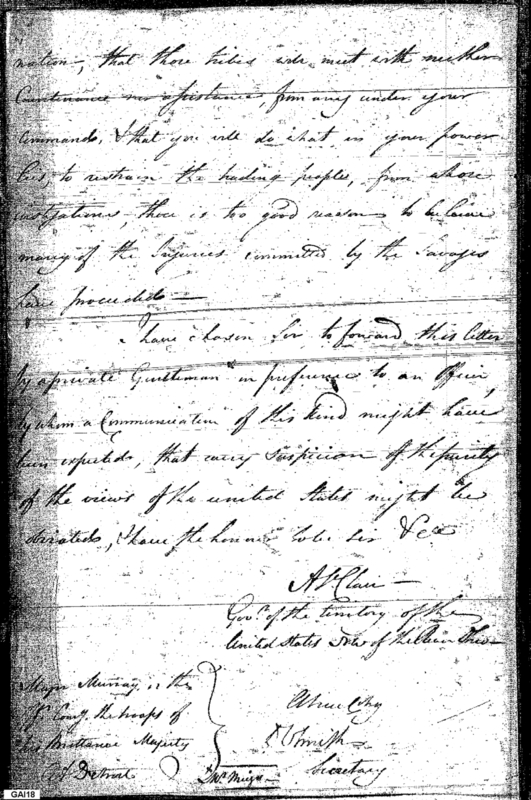 nation, that those tribes will meet with neither
Countenance nor assistance, from any under your
Command, & that you will do what in your power
lies, to restrain the trading people, from whose
instigations, there is too good reason to believe
many of the Injuries committed by the Savages
have proceeded —
I have chosen Sir to forward this letter
by a private Gentleman in preference to an Officer,
by whom a Communication of this kind might have
been expected, that every suspicion of the purity
of the views of the united States might be
obviated, I have the honor to be Sir &ca
A St Clair —
Govr. of the territory of the
United States N W of the River Ohio
Major Murray, or the
Offr. Comg. the troops of
his Brittanic Majesty
at Detroit
A true Copy
Smith
Secretary
GAI18